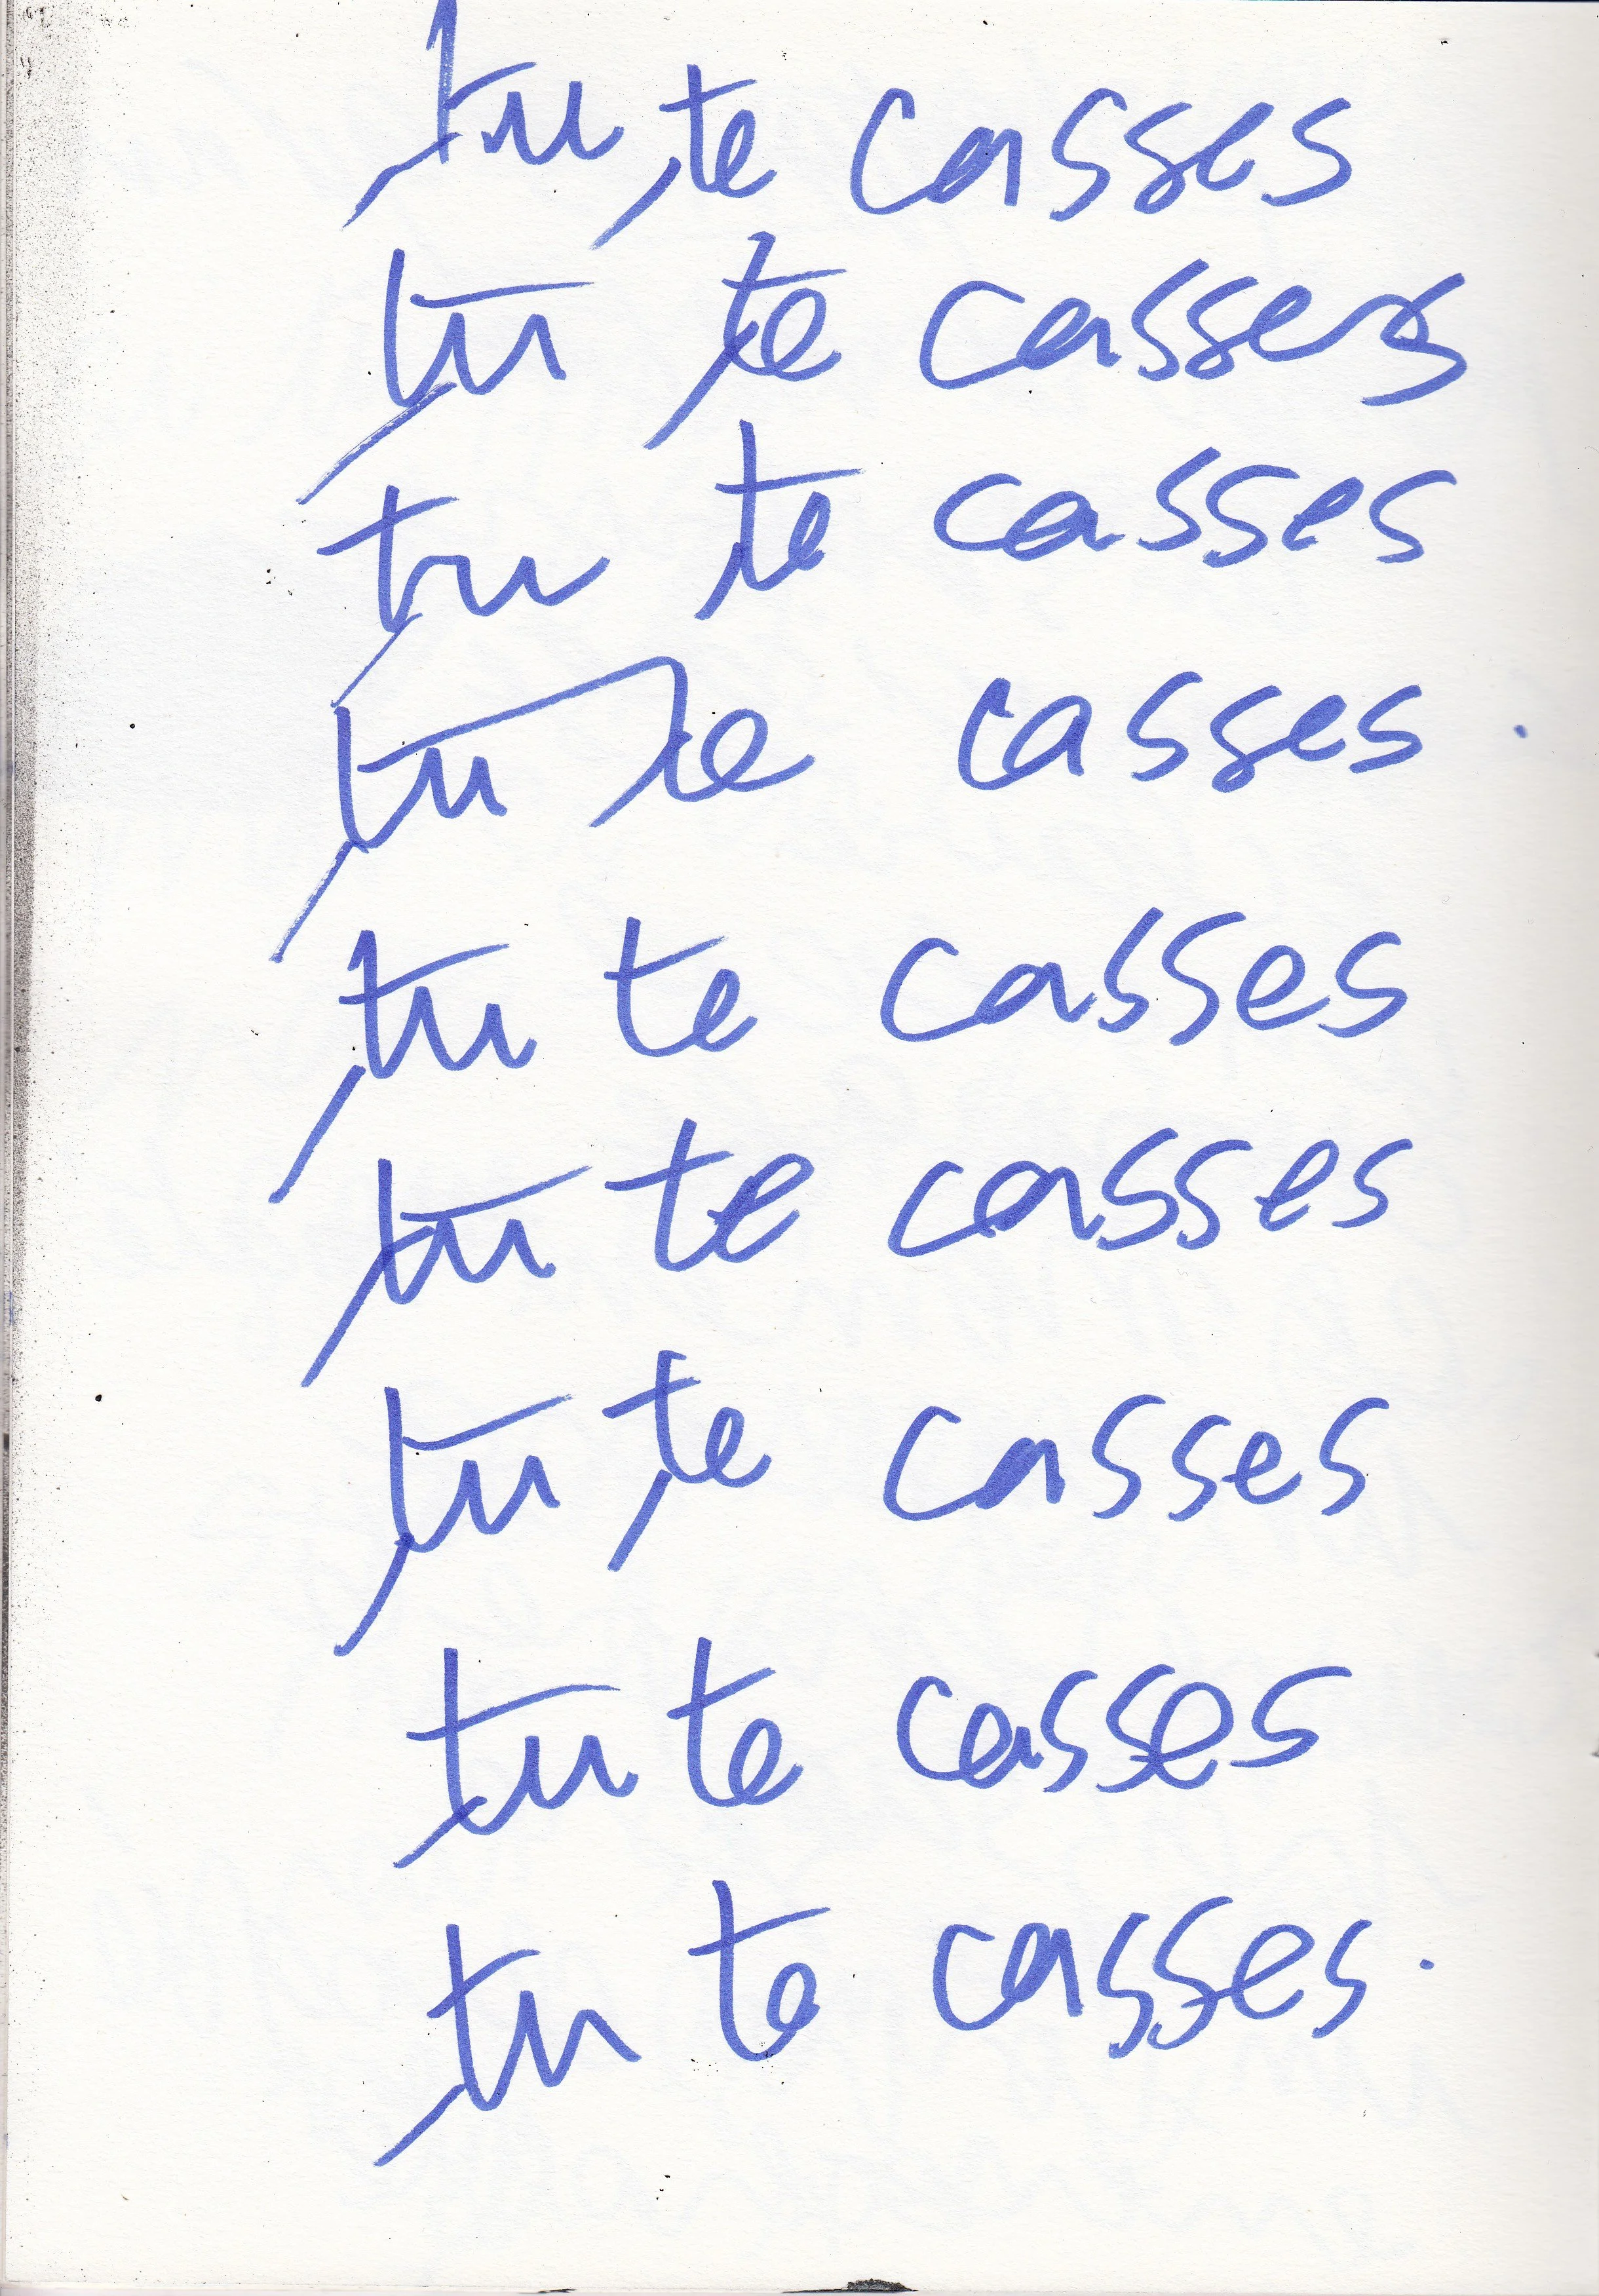 tu te casses
tu te casses
tu te casses
tu te casses
tu te casses
tu te casses
tu te casses
tu te casses
tu te casses.